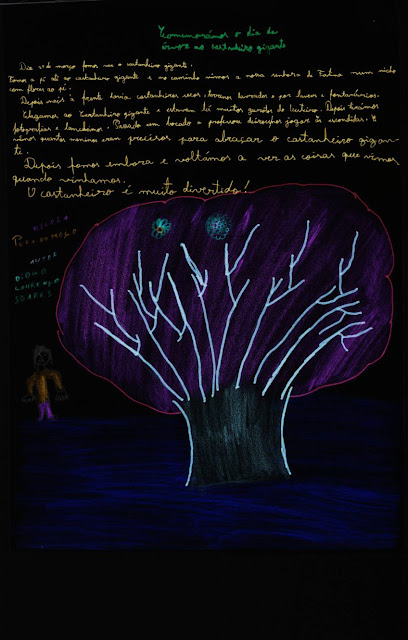 Comemorámos o dia da
árvore ao castanheiro gigante
Dia 21 de março fomos ver o castanheiro gigante.
Fomos a pé até ao castanheiro gigante e no caminho vimos a nossa senhora de Fátima num nicho
com flores ao pé.
Depois mais à frente havia castanheiros secos, terrenos lavrados e por lavrar e fontanários.
Chegamos ao Castanheiro gigante e estavam lá muitos garotos do infantário. Depois tirámos
fotografias e lanchámos. Passado um bocado a professora deixou-nos jogar às escondidas. E
vimos quantos meninos eram precisos para abraçar o castanheiro gigan-
te.
Depois fomos embora e voltámos a ver as coisas que vimos
quando vínhamos.
O castanheiro é muito divertido!
ESCOLA
AUTOR
DIOGO
LOURENÇO
SOARES